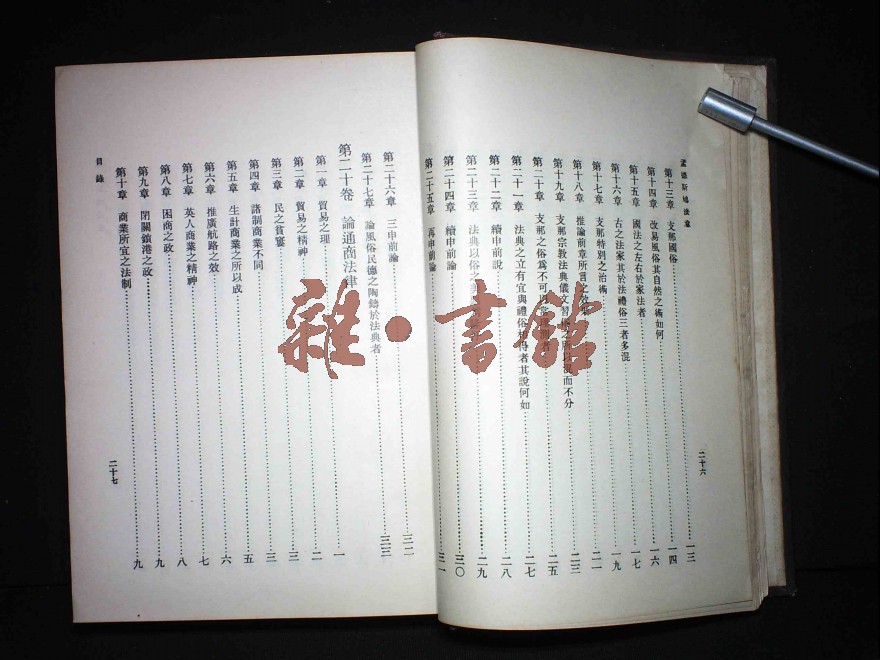 孟德斯鳩法意
第十三章 支那國俗 一三
第十四章 改易風俗其自然之術如何 一四
第十五章 國法之左右於家法者 一六
第十六章 古之法家其於法禮俗三者多混 一七
第十七章 支那特別之治術 一九
第十八章 推論前章所言之效 二一
第十九章 支那宗教法典儀文習俗之所以混而不分 二三
第二十章 支那之俗爲不可以 二五
第二十一章 法典之立有宜與禮俗相得者其說何如 二七
第二十二章 續申前說 二八
第二十三章 法典以俗之美 二九
第二十四章 續申前論 三〇
第二十五章 再申前論 三一
二十六
第二十六章 三申前論 三二
第二十七章 論風俗民德之陶鑄於法典者 三三
第二十卷 論通商法律
第一章 貿易之理 一
第二章 貿易之精神 二
第三章 民之貧窶 三
第四章 諸制商業不同 三
第五章 生計商業之所以成 五
第六章 推廣航路之效 六
第七章 英人商業之精神 七
第八章 困商之政 八
第九章 閉關鎖港之政 九
第十章 商業所宜之法制 九
目錄
二十七
雜·書館